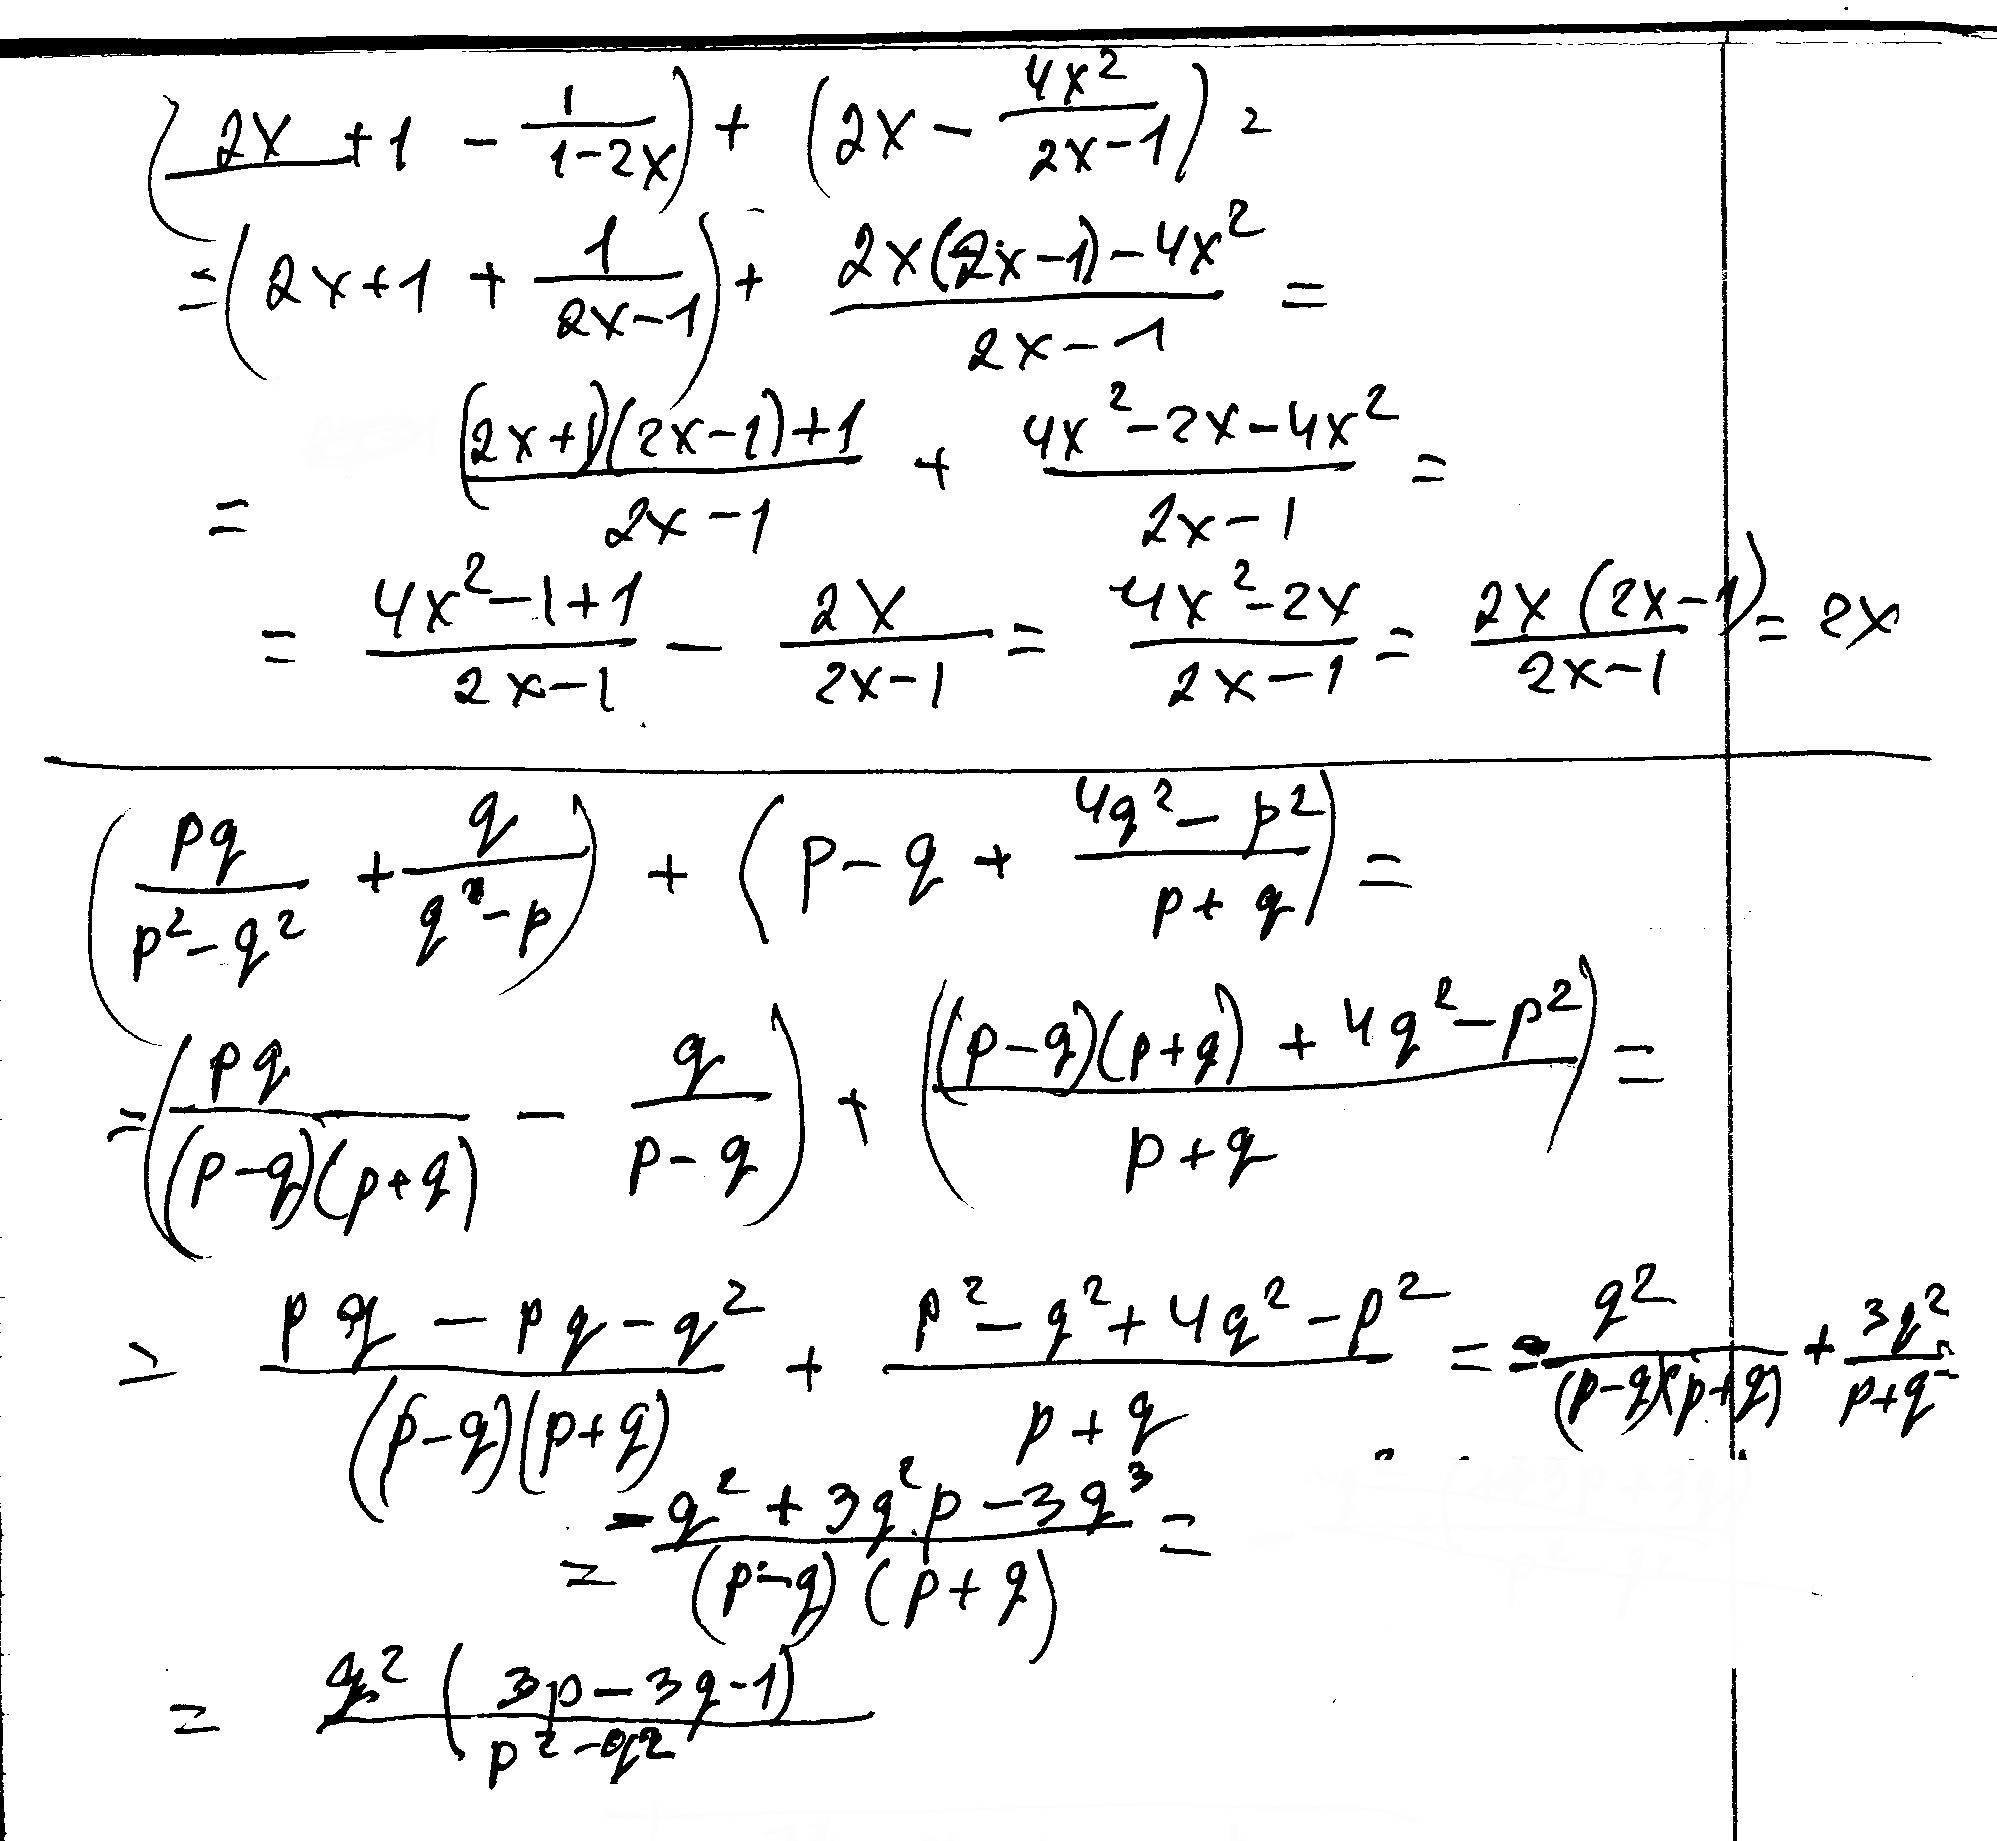 (2x + 1 - 1/(1-2x)) + (2x - 4x²/(2x-1)) =
= (2x+1 + 1/(2x-1)) + (2x(2x-1) - 4x²)/(2x-1) =
= ((2x+1)(2x-1)+1)/(2x-1) + (4x² - 2x - 4x²)/(2x-1) =
= (4x² - 1 + 1)/(2x-1) - 2x/(2x-1) = (4x² - 2x)/(2x-1) = 2x(2x-1)/(2x-1) = 2x
(pq/(p² - q²) + q/(q - p)) + (p - q + (4q² - p²)/(p+q)) =
= (pq/((p-q)(p+q)) - q/(p-q)) + (((p-q)(p+q) + 4q² - p²)/(p+q)) =
= (pq - pq - q²)/((p-q)(p+q)) + (p² - q² + 4q² - p²)/(p+q) = - q²/((p-q)(p+q)) + 3q²/(p+q) =
= (-q² + 3q²p - 3q³)/((p-q)(p+q)) =
= q²(3p - 3q - 1)/(p² - q²)